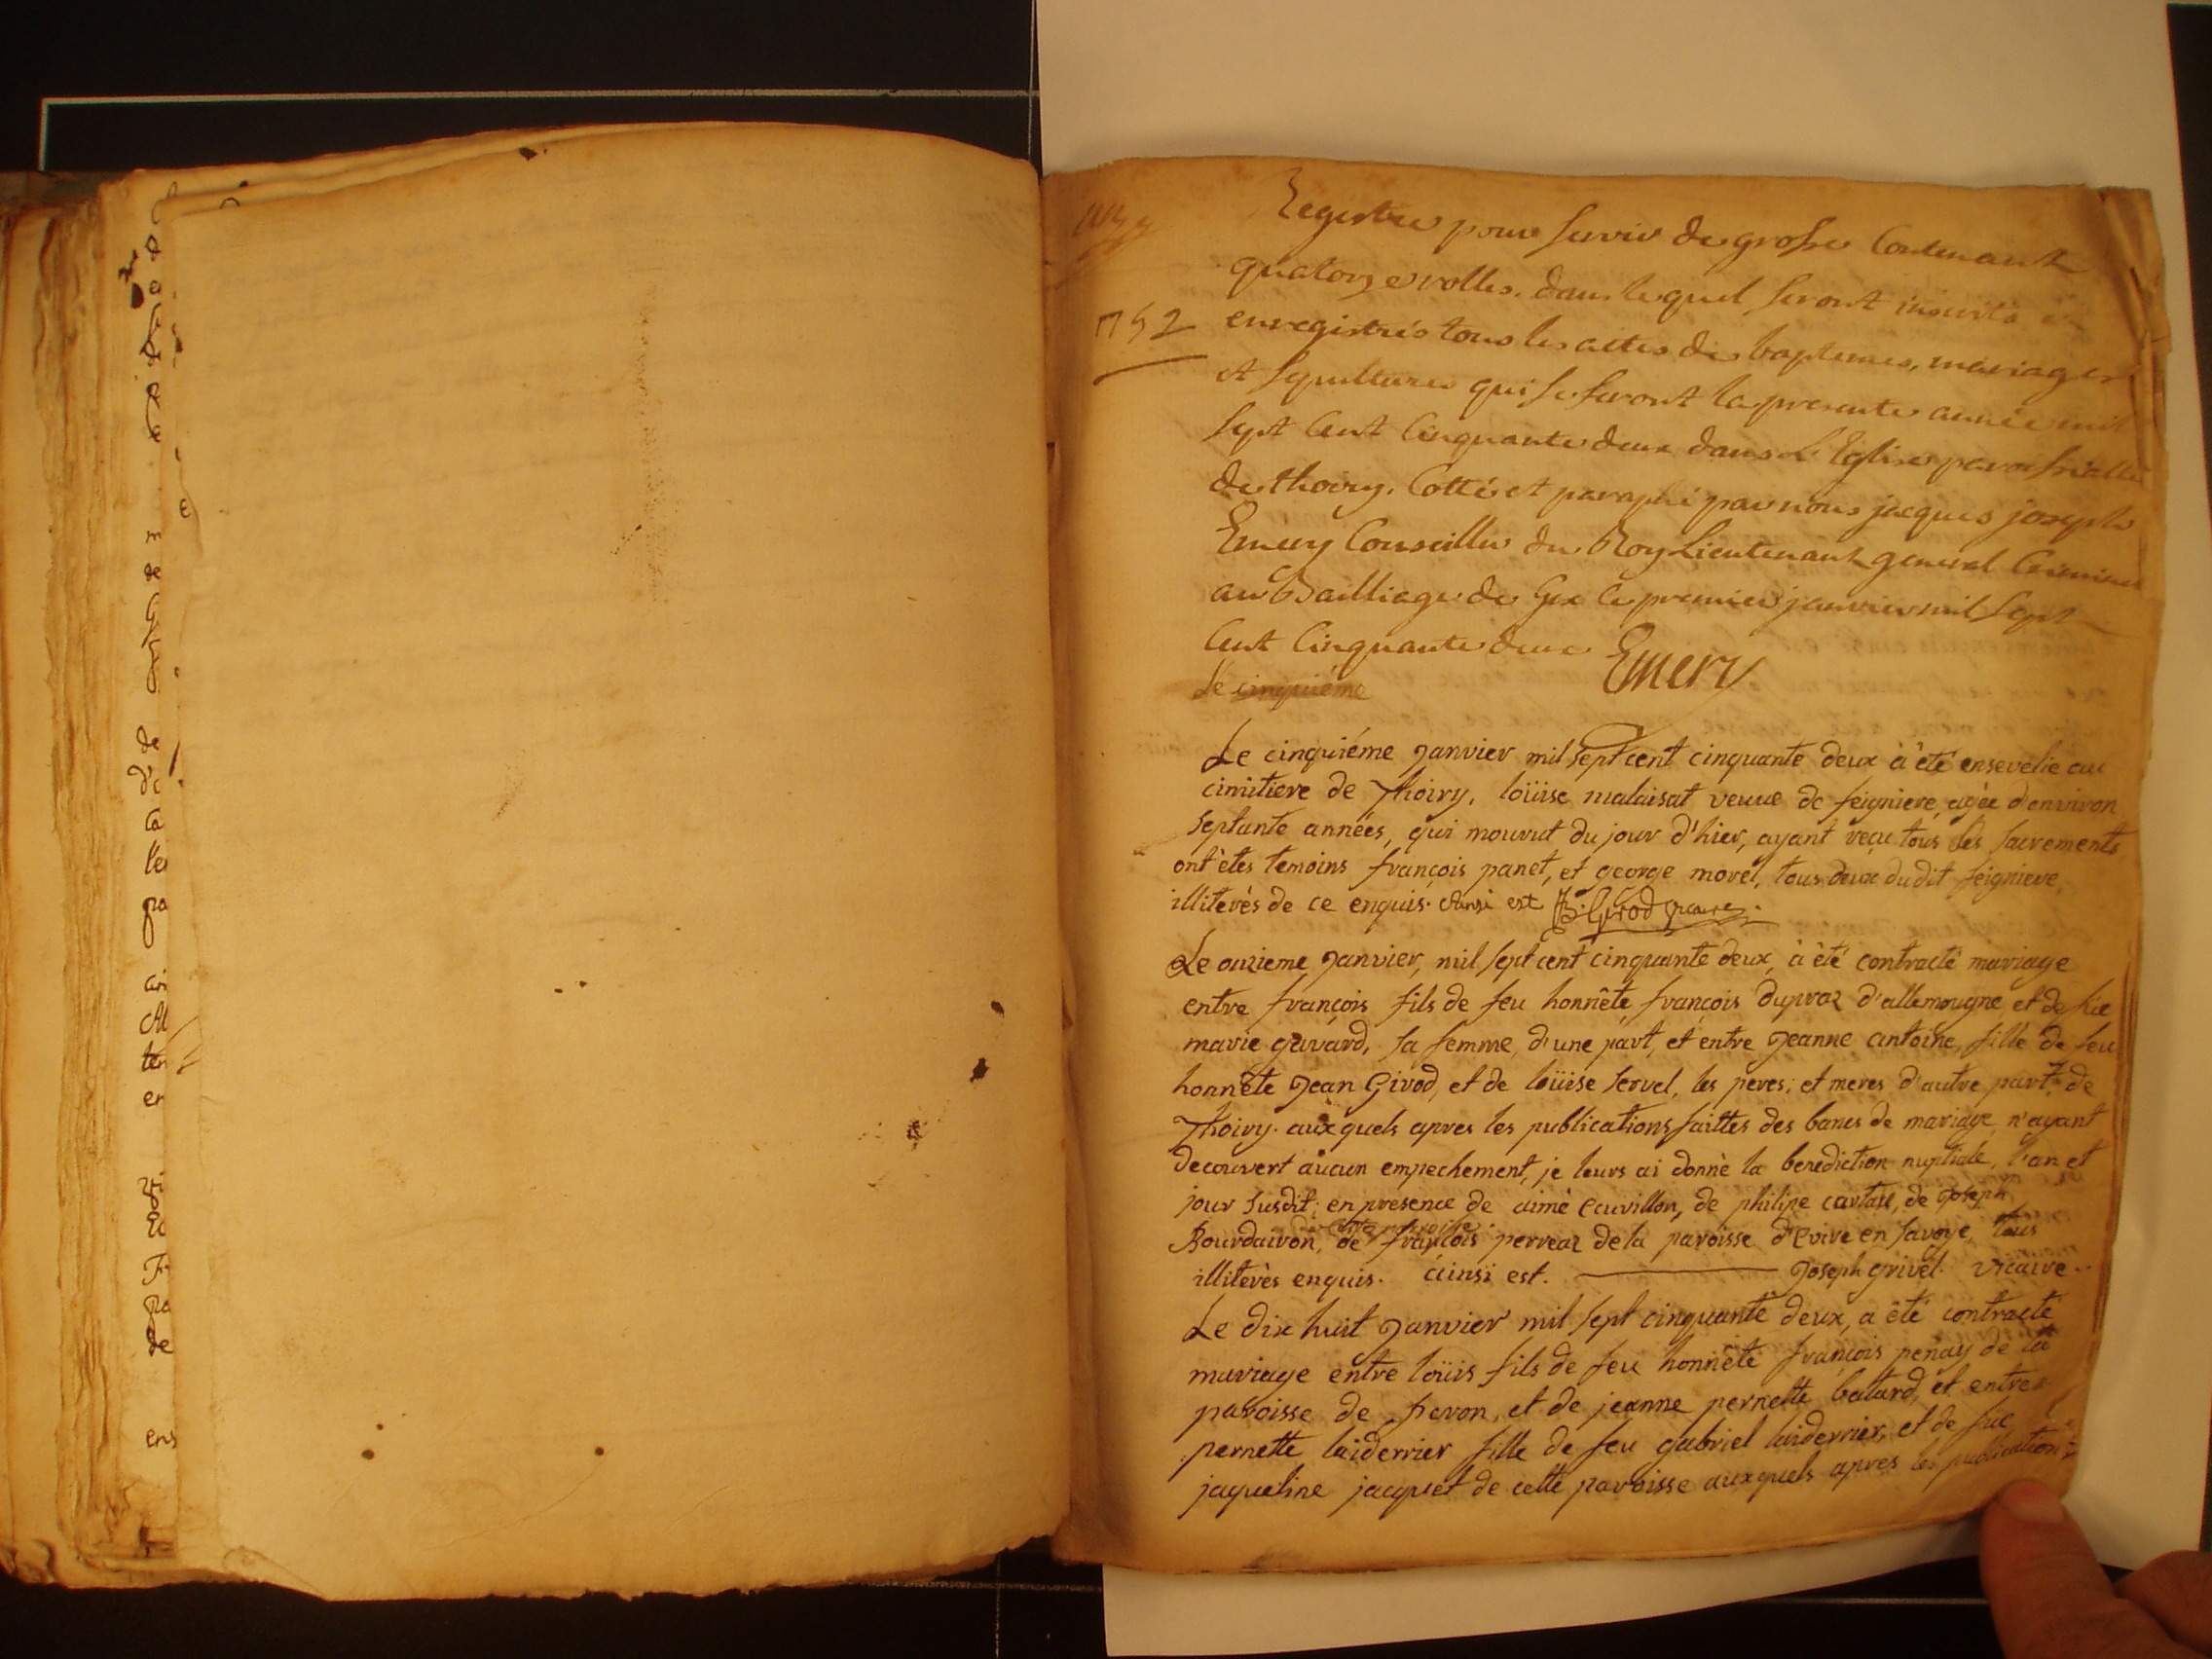 Registre pour servir de grosse Contenant
quatorze rolles, dans lequel seront inscrits et
1752
enregistrés tous les actes des baptemes, mariages
et sepultures qui se feront la presente année mil
sept Cent Cinquante deux dans L'Eglise paroissialle
de thoiry. Cotté et paraphé par nous jacques joseph
Emery Conseiller du Roy Lieutenant general Criminel
au Bailliage de Gex le premier janvier mil sept
Cent Cinquante deux Emery
Le cinquiéme
Le cinquiéme Janvier mil sept cent cinquante deux à été ensevelie au
cimitiere de Thoiry, loüise malaisat veuve de feigniere, agée d'environ
septante années, qui mourut du jour d'hier, ayant reçu tous les sacrements
ont êtés temoins françois panet, et george morel, tous deux dudit feigniere,
illiterés de ce enquis. Ainsi est Girod vicaire.
Le onzieme Janvier, mil sept cent cinquante deux, à été contracté mariage
entre françois fils de feu honnête françois dupraz d'allemougne et de fûe
marie gavard, sa femme, d'une part, et entre Jeanne antoine, fille de feu
honnête Jean Girod, et de loüise servel, les peres, et meres d'autre part, de
Thoiry. aux quels apres les publications faittes des bancs de mariage, n'ayant
decouvert aucun empechement, je leurs ai donné la benediction nuptiale, l'an et
jour susdit; en presence de aimé cauvillon, de philipe cartan, de Joseph
Bourdairon, de françois perreaz de la paroisse d'evire en savoye, tous
illiterès enquis. ainsi est. Joseph grivel. vicaire.
Le dix huit Janvier mil sept cinquante deux, a été contracté
mariage entre loüis fils de feu honnête françois penay de la
paroisse de peron, et de jeanne pernette batard, et entre
pernette laiderrier fille de feu gabriel laiderrier, et de fûe
jaqueline jacquet de cette paroisse auxquels apres les publications